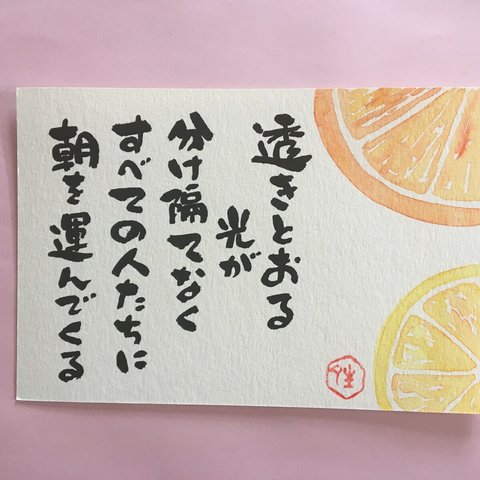 透きとおる
光が
分け隔てなく
すべての人たちに
朝を運んでくる